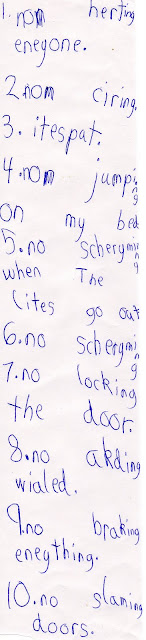 1. non herting
eneyone.
2. non ciring.
3. itespat.
4. non jumping
on my bed
5. no scheryming
when The
lites go out
6. no scheryming
7. no locking
the door.
8. no akding
wialed.
9. no braking
eneything.
10. no slaming
doors.